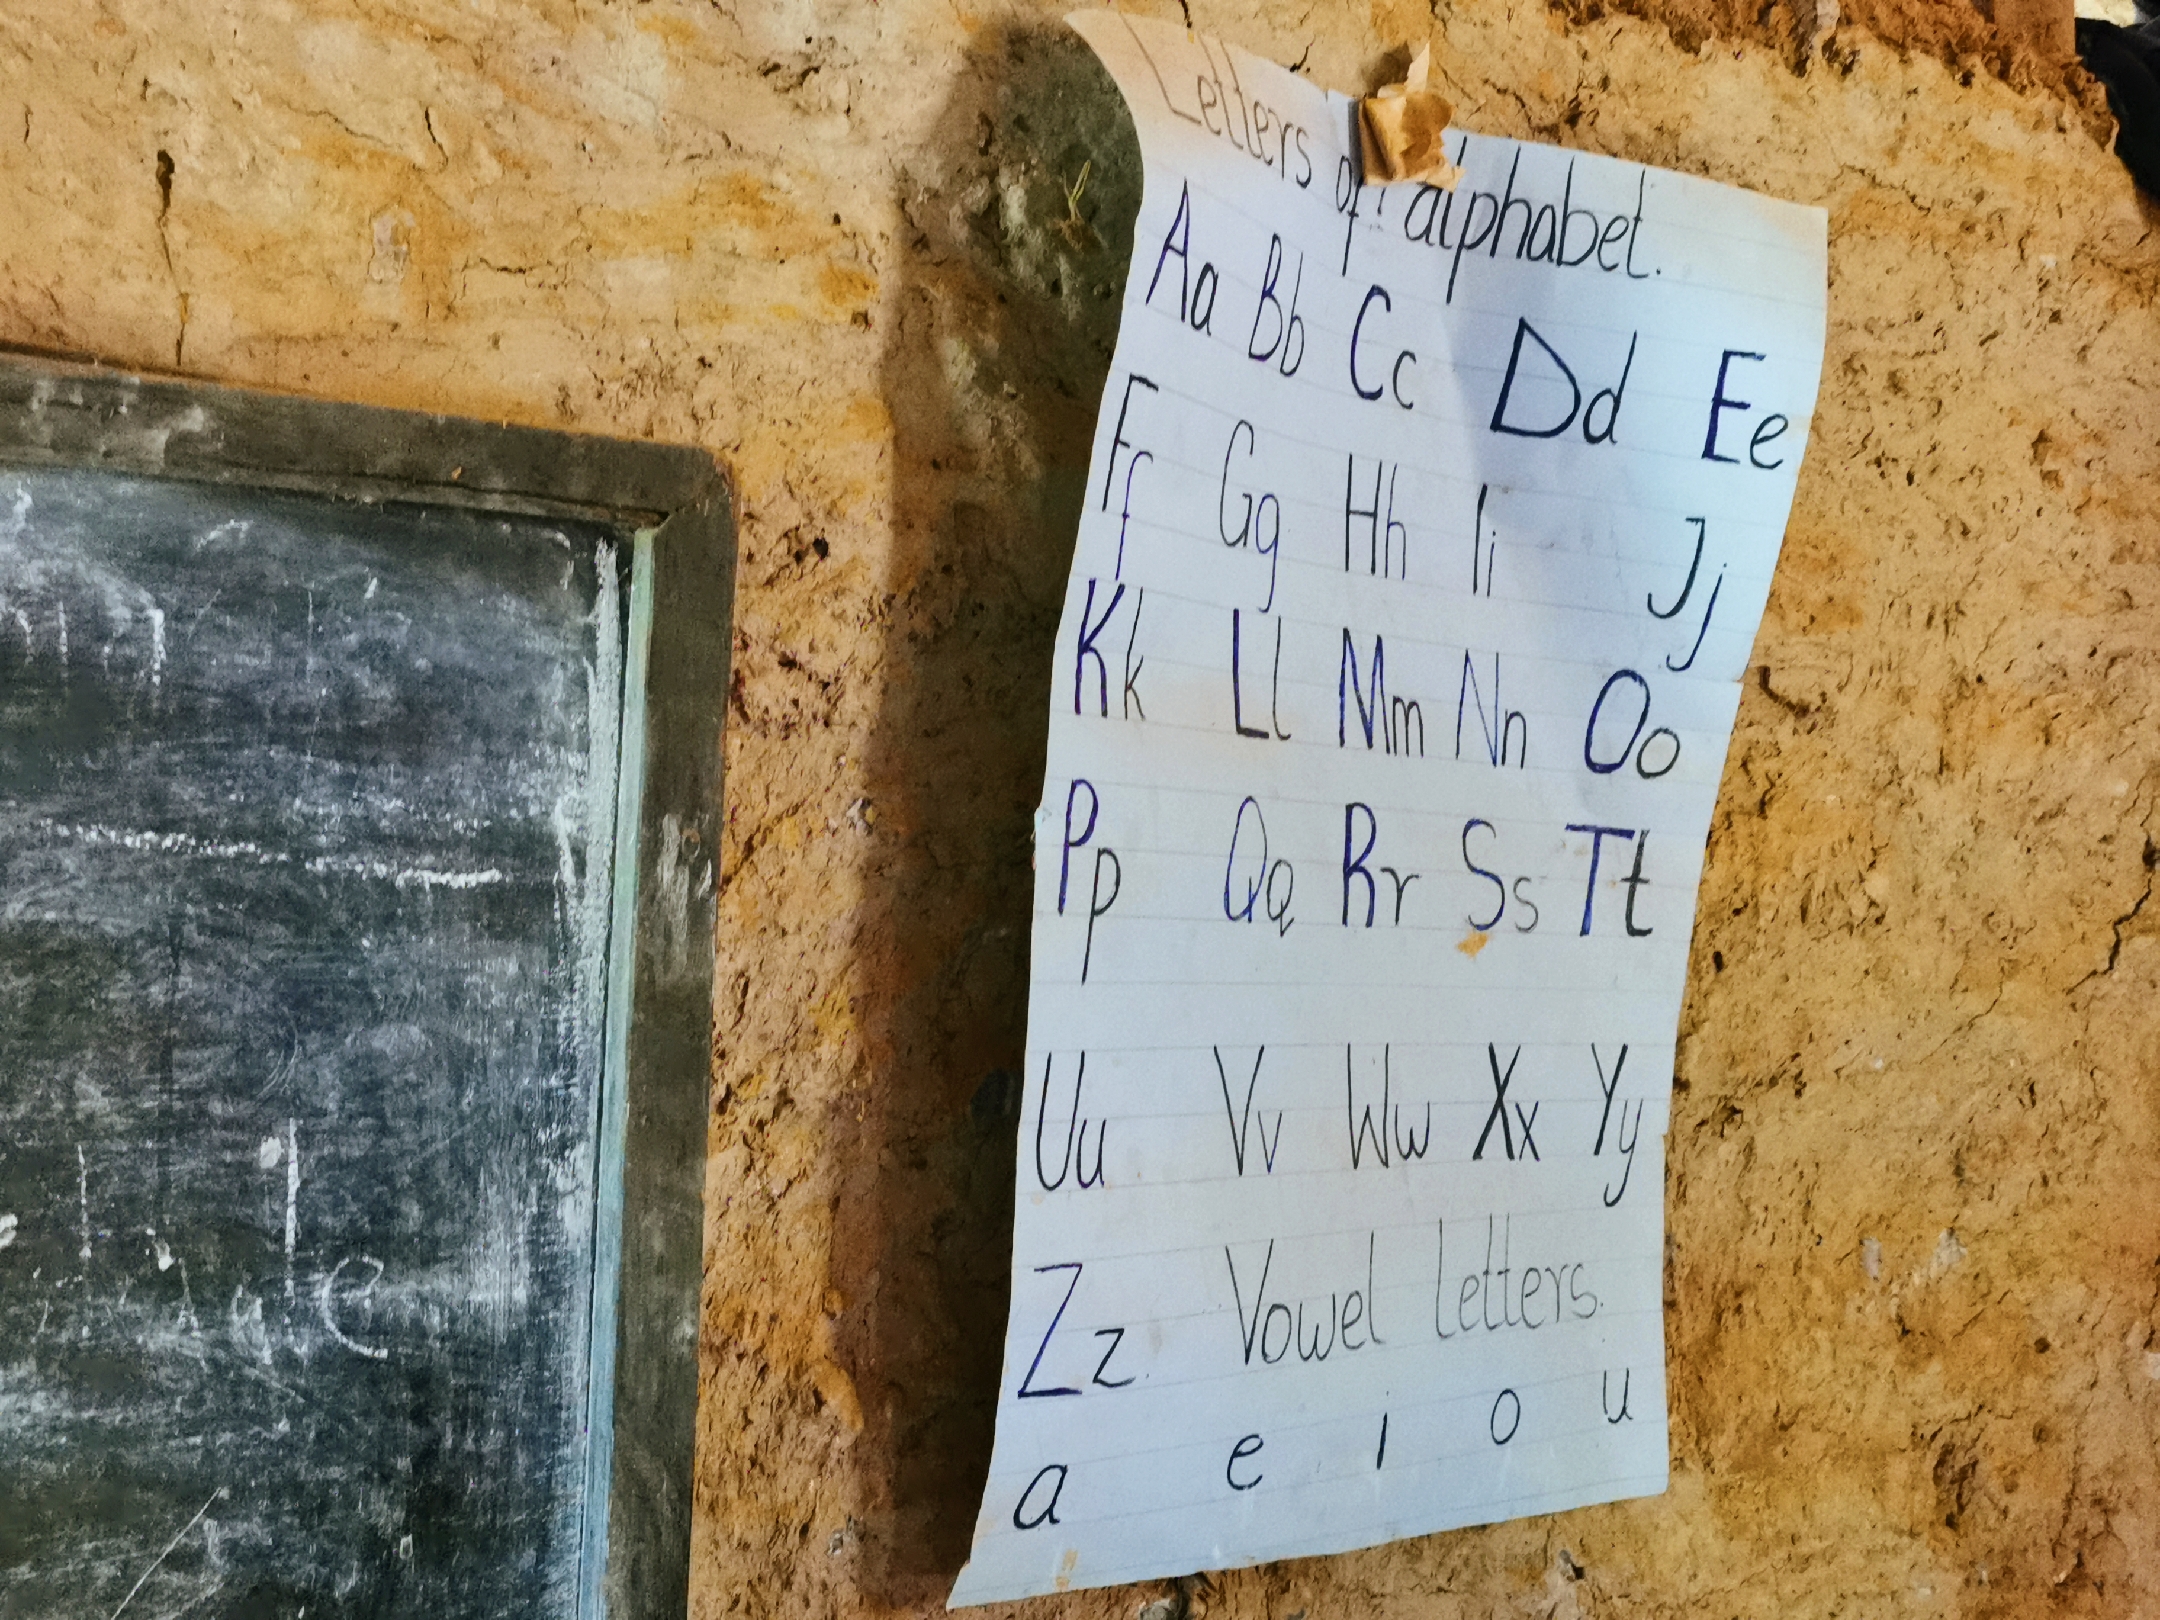 Letters of alphabet.
Aa Bb Cc Dd Ee
Ff Gg Hh Ii Jj
Kk Ll Mm Nn Oo
Pp Qq Rr Ss Tt
Uu Vv Ww Xx Yy
Zz Vowel letters.
a e i o u